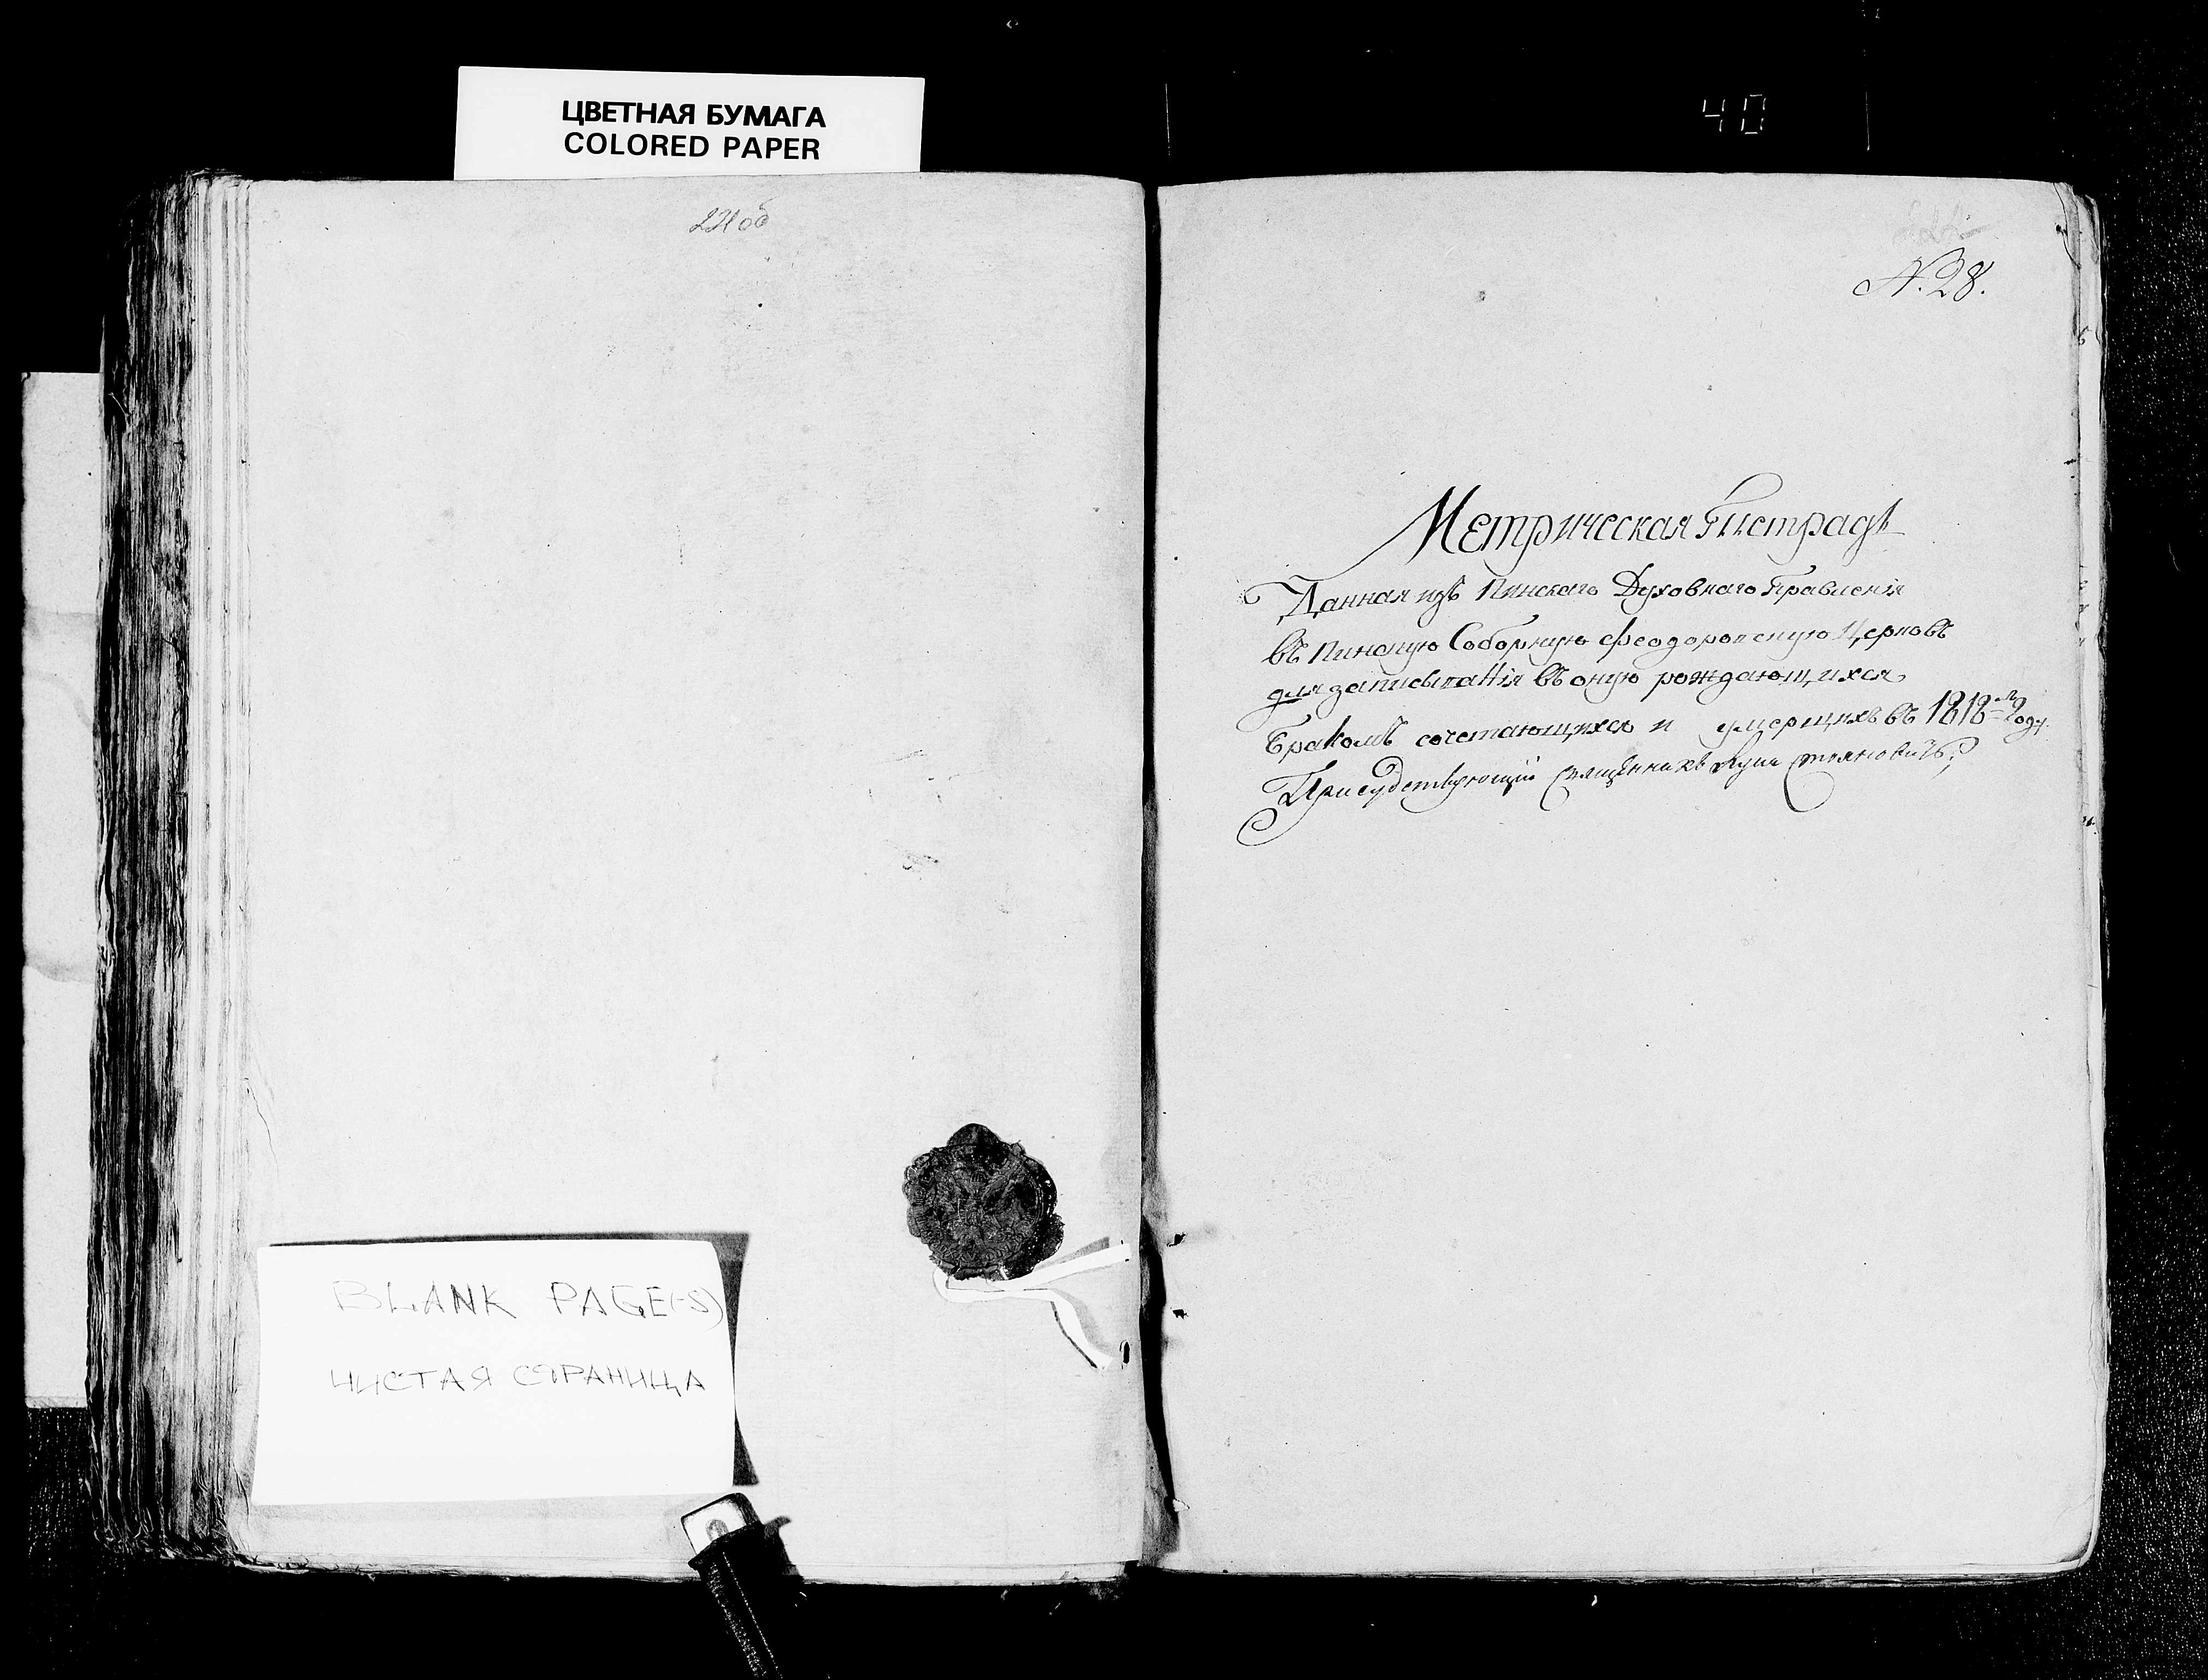 ЦВЕТНАЯ БУМАГА
COLORED PAPER
40
221 об
222
N. 28.
Метрическая Тистрадь
Данная изъ Пинскаго Духовнаго Правленія
въ Пинскую Соборную Феодоровскую Церковь
для записыванія въ оную рождающихся
Бракомъ сочетающихся и умерщихъ въ 1818-м Году.
Присудствующій священникъ Лука Стояновичъ;
BLANK PAGE(-S)
ЧИСТАЯ СТРАНИЦА